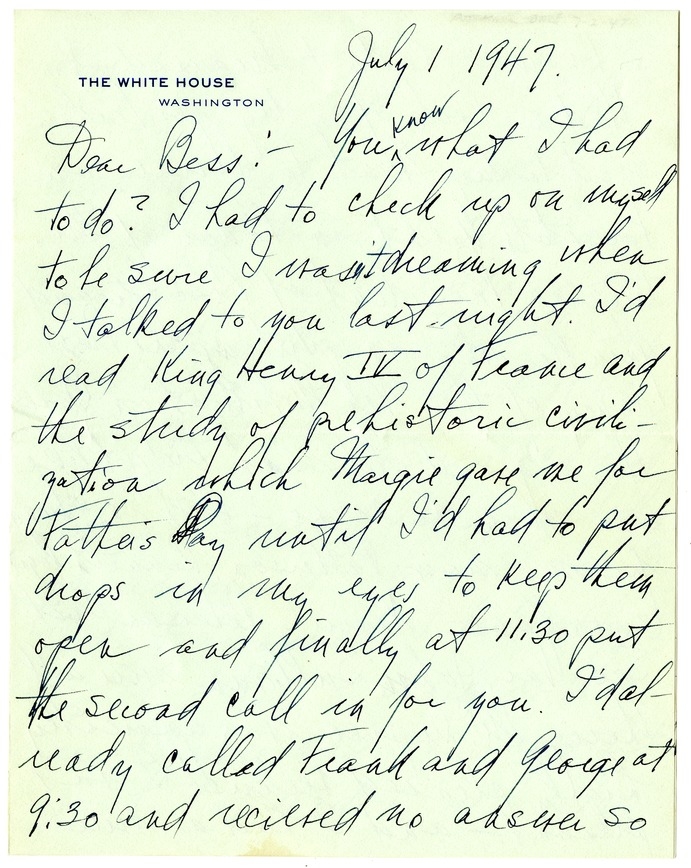 July 1 1947.
THE WHITE HOUSE
WASHINGTON
Dear Bess:- You know what I had
to do? I had to check up on myself
to be sure I wasn't dreaming when
I talked to you last night. I'd
read King Henry IV of France and
the study of prehistoric civili-
zation which Margie gave me for
Father's Day until I'd had to put
drops in my eyes to keep them
open and finally at 11:30 put
the second call in for you. I'd al-
ready called Frank and George at
9:30 and recieved no answer so